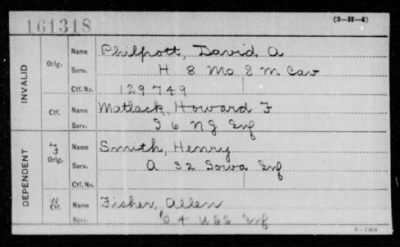 161318
(3-H-4)
INVALID
Orig.
Name Philpott, David A
Serv. H 8 Mo S M Cav
Ctf. No. 129749
Ctf.
Name Matlack, Howard F
Serv. I 6 NJ Inf
DEPENDENT
F
Orig.
Name Smith, Henry
Serv. A 32 Iowa Inf
Ctf. No.
W
Ctf.
Name Fisher, Allen
Serv. G 4 USS Inf